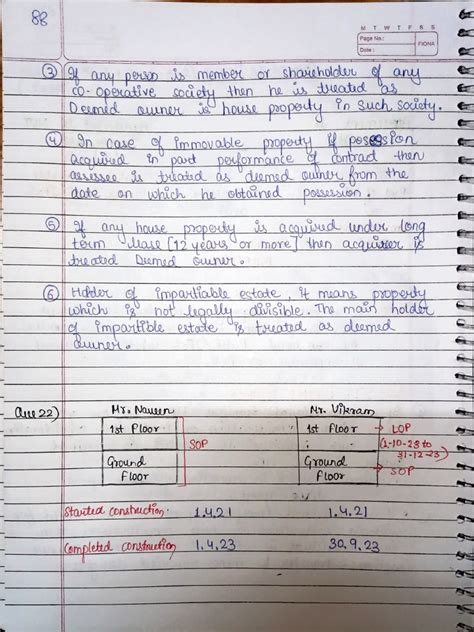 88
M T W T F S S
Page No.:
Date:
FIONA
③ If any person is member or shareholder of any
co-operative society then he is treated as
Deemed owner is house property in such society.
④ In case of immovable property if possession
acquired in part performance of contract then
assessee is treated as deemed owner from the
date on which he obtained possession.
⑤ If any house property is acquired under long
term lease [12 years or more] then acquirer is
treated Deemed owner.
⑥ Holder of impartiable estate, it means property
which is not legally divisible. The main holder
of impartible estate is treated as deemed
owner.
Que 22) Mr. Naveen Mr. Vikram
1st Floor SOP 1st Floor → LOP
(1-10-23 to
31-12-23)
Ground Floor Ground Floor → SOP
Started construction. 1.4.21 1.4.21
Completed construction 1.4.23 30.9.23